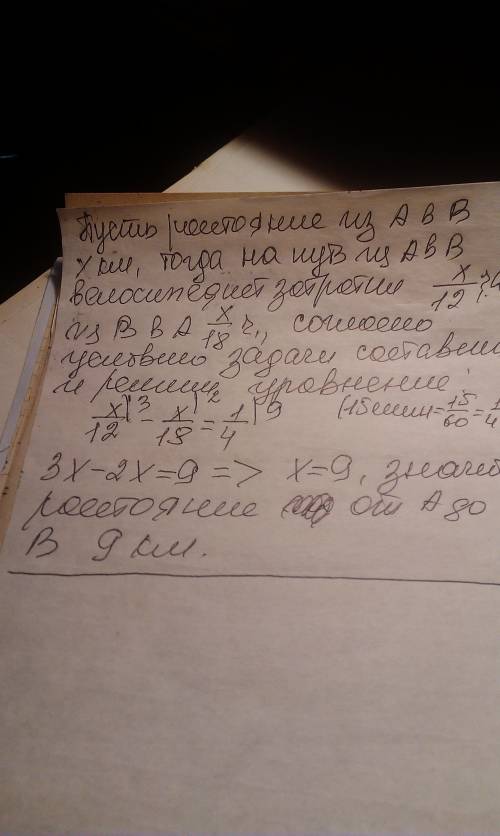 Пусть расстояние из А в В
х км, тогда на путь из А в В
велосипедист затратил x/12 ч,
из В в А x/18 ч., согласно
условию задачи составим
и решим уравнение:
x/12 \3 - x/18 \2 = 1/4 \9 (15 мин = 15/60 = 1/4
3x-2x=9 => x=9, значит
расстояние от А до
В 9 км.